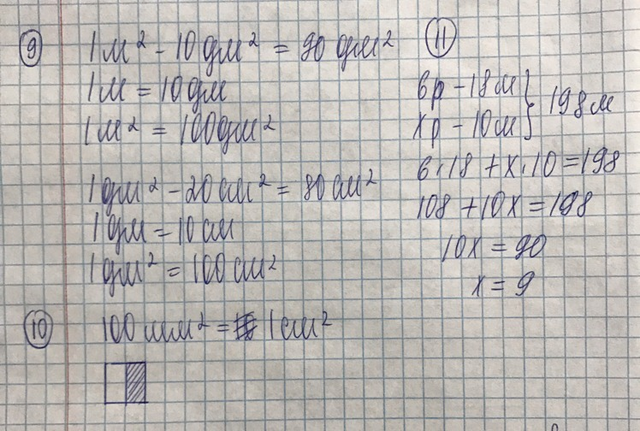 9
1м² - 10дм² = 90дм²
1м = 10дм
1м² = 100дм²
1дм² - 20см² = 80см²
1дм = 10см
1дм² = 100см²
10
100мм² = 1см²
11
6р - 18м
хр - 10м } 198м
6·18 + х·10 = 198
108 + 10х = 198
10х = 90
х = 9